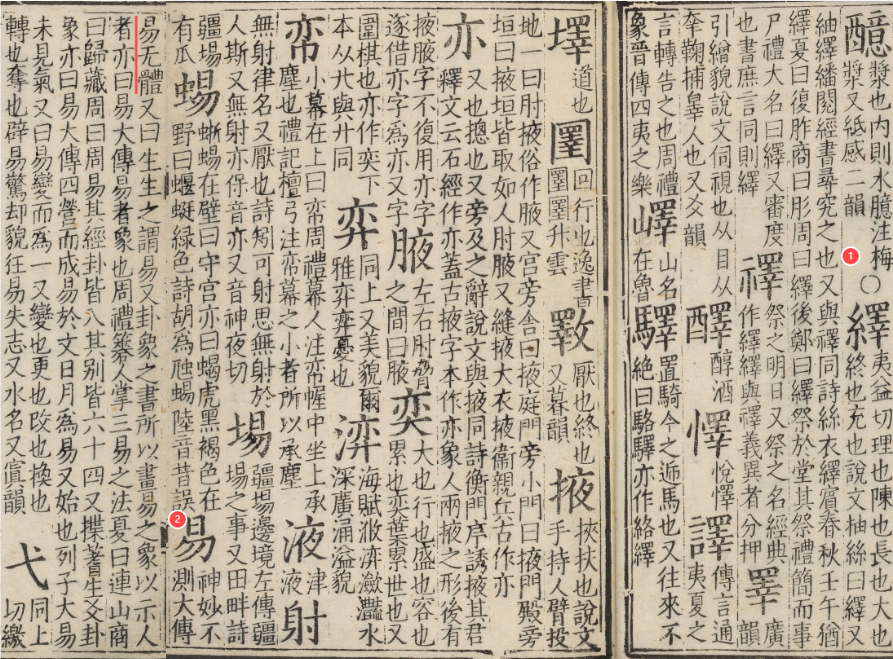 醷漿也內則水臆注梅漿又紙感二韻○繹夷益切理也陳也長也大也終也充也說文抽絲曰繹又
紬繹繙閱經書尋究之也又與禪同詩絲衣繹賓春秋壬午猶
繹夏曰復胙商曰肜周曰繹後鄭曰繹祭於堂其祭禮簡而事
尸禮大名曰繹又審度也書庶言同則繹禪祭之明日又祭之名經典作繹繹與禪義異者分押睪廣韻
引繒貌說文伺視也从目从㚔鞠捕辠人也又爻韻醳醇酒懌悅懌譯傳言通夷夏之
言轉告之也周禮象晉傳四夷之樂嶧山名在魯驛置騎今之逓馬也又往來不絶曰駱驛亦作絡繹
墿道也圛回行也逸書圛圛升雲斁厭也終也又暮韻掖挾扶也說文手持人臂投
地一曰肘掖俗作腋又宫旁舍曰掖庭門旁小門曰掖門殿旁
垣曰掖垣皆取如人肘腋又縫掖大衣掖衞親丘古作亦
亦又也摠也又旁及之辭說文與掖同詩衡門序誘掖其君釋文云石經作亦蓋古掖字本作亦象人兩掖之形後有
掖腋字不復用亦字遂借亦字為亦又字腋左右肘脅之間曰腋奕大也行也盛也容也累也奕葉累世也又
圍棋也亦作奕下本从六與廾同弈同上又美貌爾雅弈弈憂也湙海賦㳖湙瀲灩水深廣涌溢貌
帟小幕在上曰帟周禮幕人注帟幄中坐上承塵也禮記檀弓注帟幕之小者所以承塵液津液射
無射律名又厭也詩矧可射思無射於人斯又無射亦保音亦又音神夜切埸疆埸邊境左傳疆埸之事又田畔詩
疆埸有瓜蜴蜥蜴在壁曰守宮亦曰蝎虎黑褐色在野曰蝘蜓綠色詩胡為虺蜴陸音昔誤易神妙不測大傳
易无體又曰生生之謂易又卦象之書所以畫易之象以示人
者亦曰易大傳易者象也周禮簭人掌三易之法夏曰連山商
曰歸藏周曰周易其經卦皆八其別皆六十四又揲蓍生爻卦
象亦曰易大傳四營而成易於文日月爲易又始也列子大易
未見氣又曰易變而爲一又變也更也攺也換也
轉也奪也辟易驚却貌狂易失志又水名又寘韻弋同上切繳
1
2